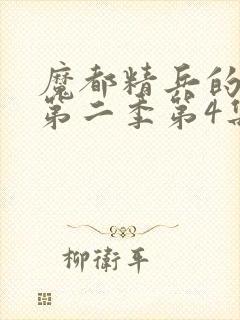 魔都精兵的
第二季第4集
柳衛平